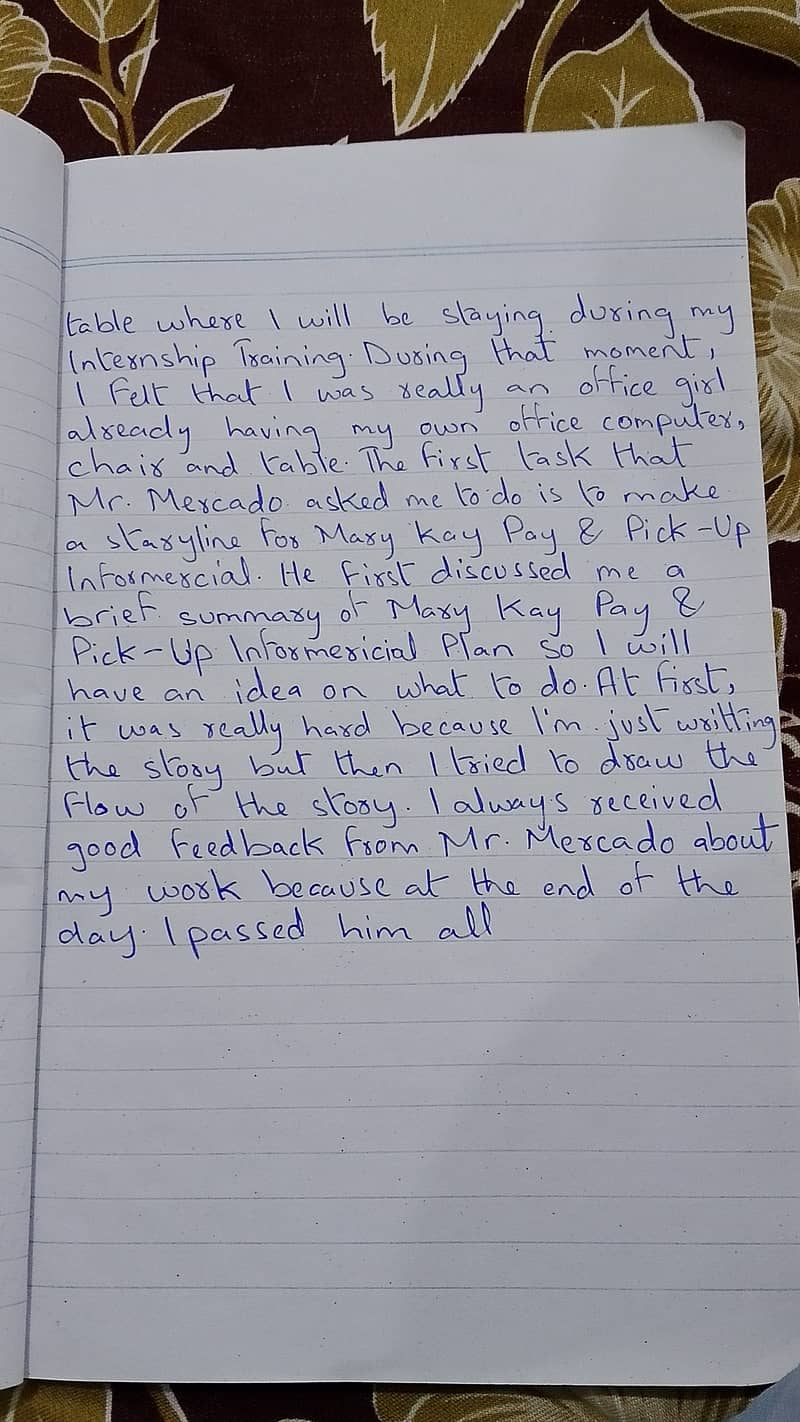 table where I will be staying during my
Internship Training. During that moment,
I felt that I was really an office girl
already having my own office computer,
chair and table. The first task that
Mr. Mercado asked me to do is to make
a staryline for Mary Kay Pay & Pick-Up
Informercial. He first discussed me a
brief summary of Mary Kay Pay &
Pick-Up Informericial Plan so I will
have an idea on what to do. At first,
it was really hard because I'm just writting
the story but then I tried to draw the
flow of the story. I always received
good feedback from Mr. Mercado about
my work because at the end of the
day. I passed him all